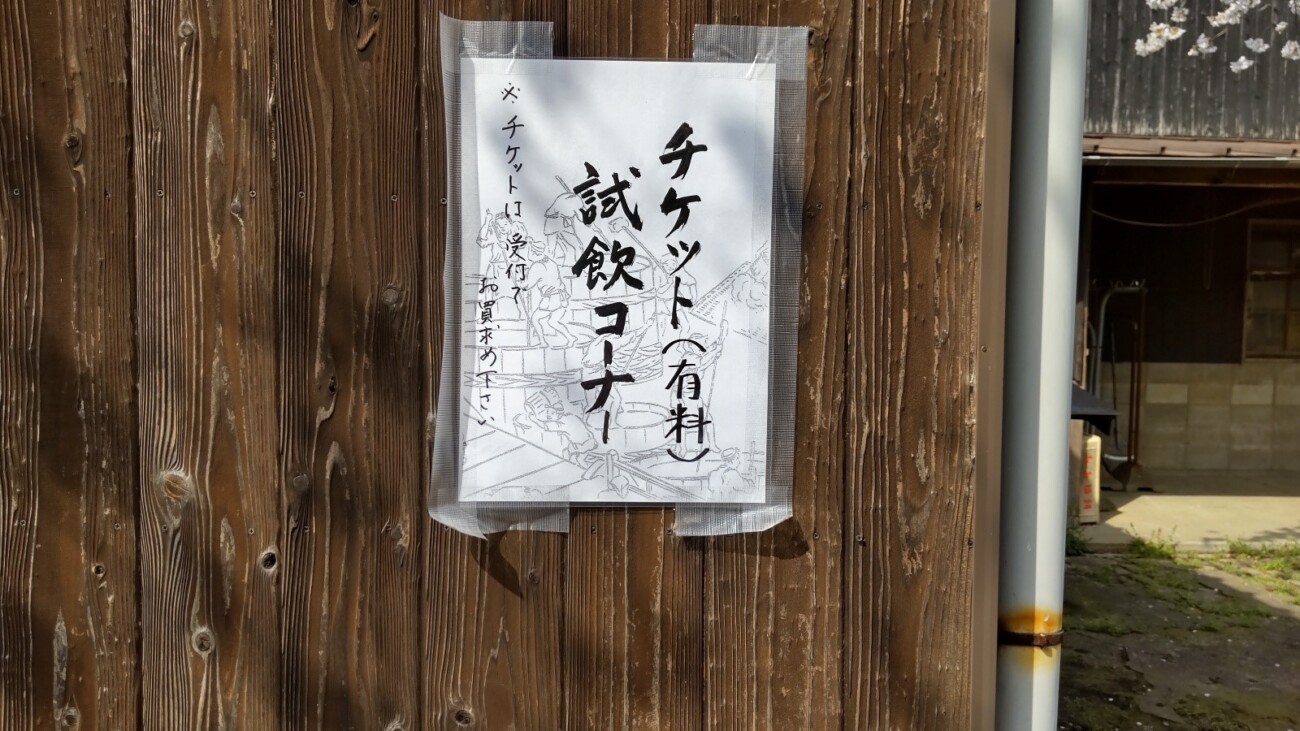 チケット(有料)
試飲コーナー
※.チケットは受付で
お買求め下さい